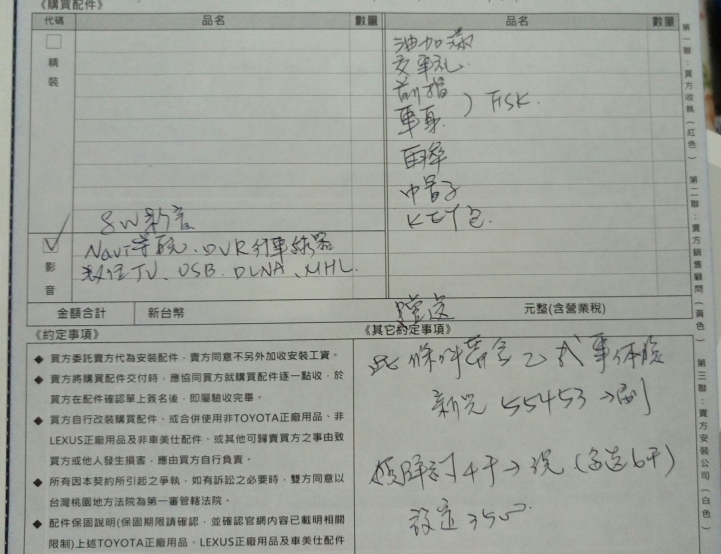 《購買配件》
代碼 品名 數量 品名 數量
精裝
油加滿
交車礼
前擋
車身 ) FSK.
KEY包
8W影音
影音
Navi導航、DVR行車紀錄器
數位TV、USB、DLNA、MHL.
金額合計 新台幣 元整(含營業稅)
《約定事項》
◆ 買方委託賣方代為安裝配件,賣方同意不另外加收安裝工資。
◆ 賣方將購買配件交付時,應協同買方就購買配件逐一點收,於
買方在配件確認單上簽名後,即屬驗收完畢。
◆ 買方自行改裝購買配件,或合併使用非TOYOTA正廠用品、非
LEXUS正廠用品及非車美仕配件、或其他可歸責買方之事由致
買方或他人發生損害,應由買方自行負責。
◆ 所有因本契約所引起之爭執,如有訴訟之必要時,雙方同意以
台灣桃園地方法院為第一審管轄法院。
◆ 配件保固說明(保固期限請確認,並確認官網內容已載明相關
限制)上述TOYOTA正廠用品、LEXUS正廠用品及車美仕配件
《其它約定事項》
此條件含乙式車体險
新光 55453→刷
4千→ 6千)
設定3500
第一聯:賣方收執(紅色) 第二聯:賣方銷售顧問(黃色) 第三聯:賣方安裝公司(白色)